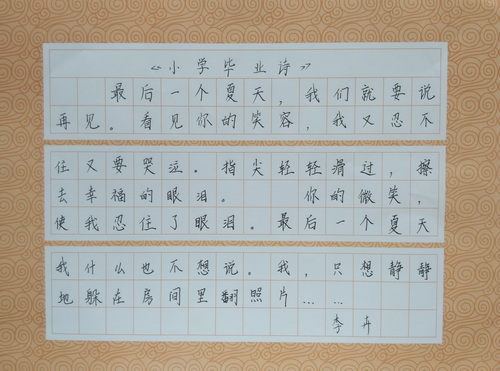 《小学毕业诗》
最后一个夏天，我们就要说
再见。看见你的笑容，我又忍不
住又要哭泣。指尖轻轻滑过，擦
去幸福的眼泪。 你的微笑，
使我忍住了眼泪。最后一个夏天
我什么也不想说。我，只想静静
地躲在房间里翻照片……
李卉